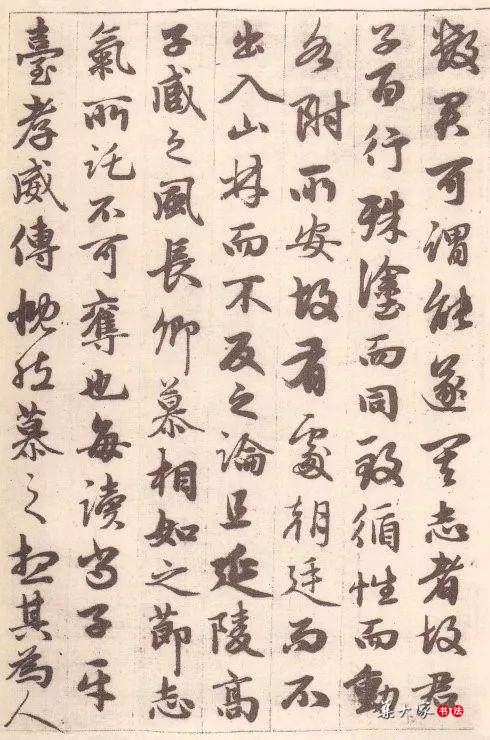 數君可謂能遂其志者故君
子百行殊塗而同致循性而動
各附所安故有處朝廷而不
出入山林而不反之論且延陵高
子臧之風長卿慕相如之節志
氣所託不可奪也每讀尚子平
臺孝威傳慨然慕之想其為人
集大家 书法